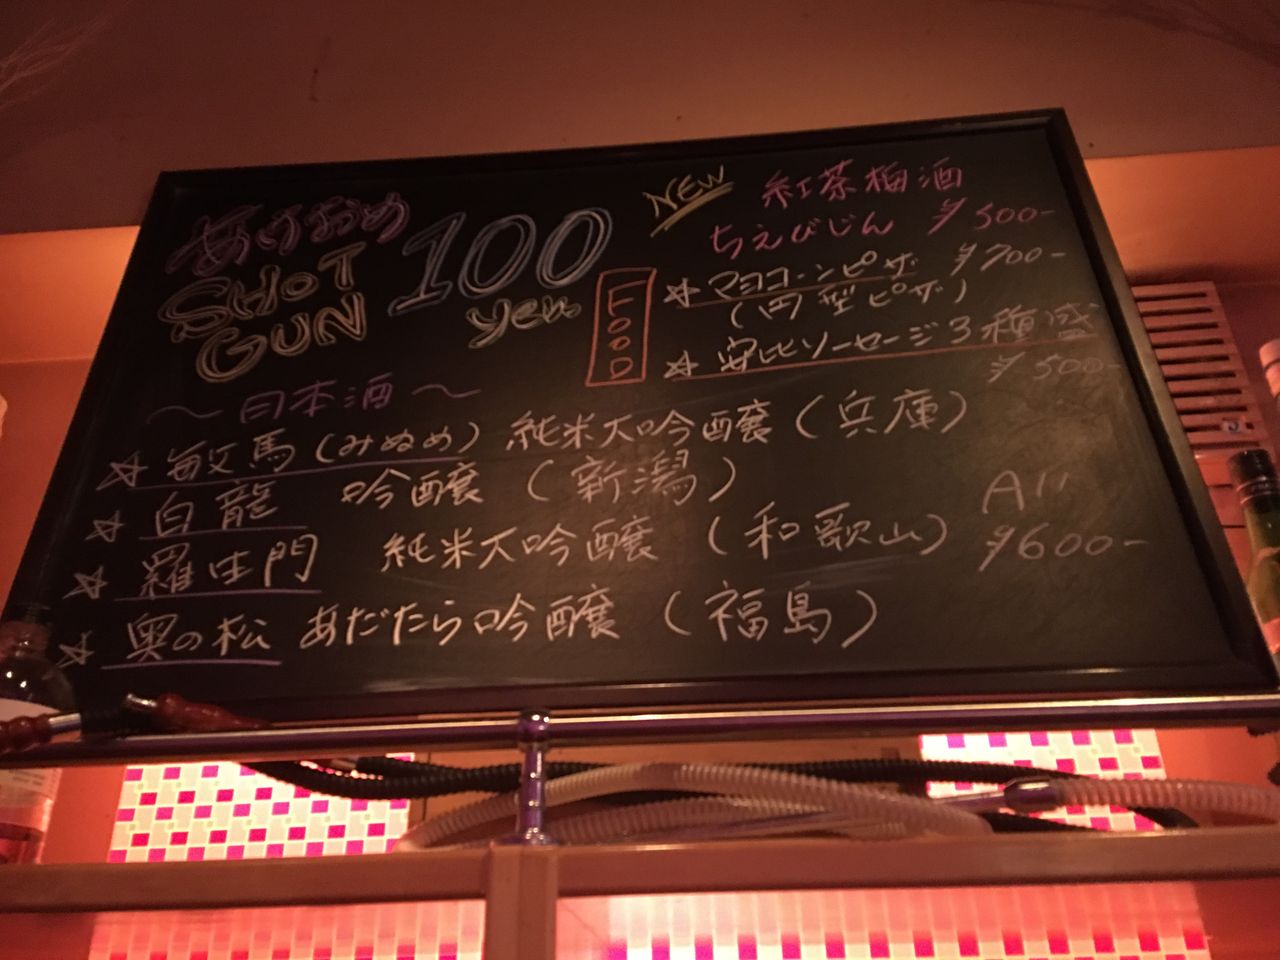 あけおめ
SHOT
GUN
100
yen
NEW
紅茶梅酒
ちえびじん ¥500-
FOOD
☆マヨコーンピザ ¥700-
(円型ピザ)
☆安比ソーセージ3種盛
¥500-
〜日本酒〜
☆敏馬(みぬめ) 純米大吟醸(兵庫)
☆白龍 吟醸(新潟)
☆羅生門 純米大吟醸(和歌山)
☆奥の松 あだたら吟醸(福島)
All
¥600-